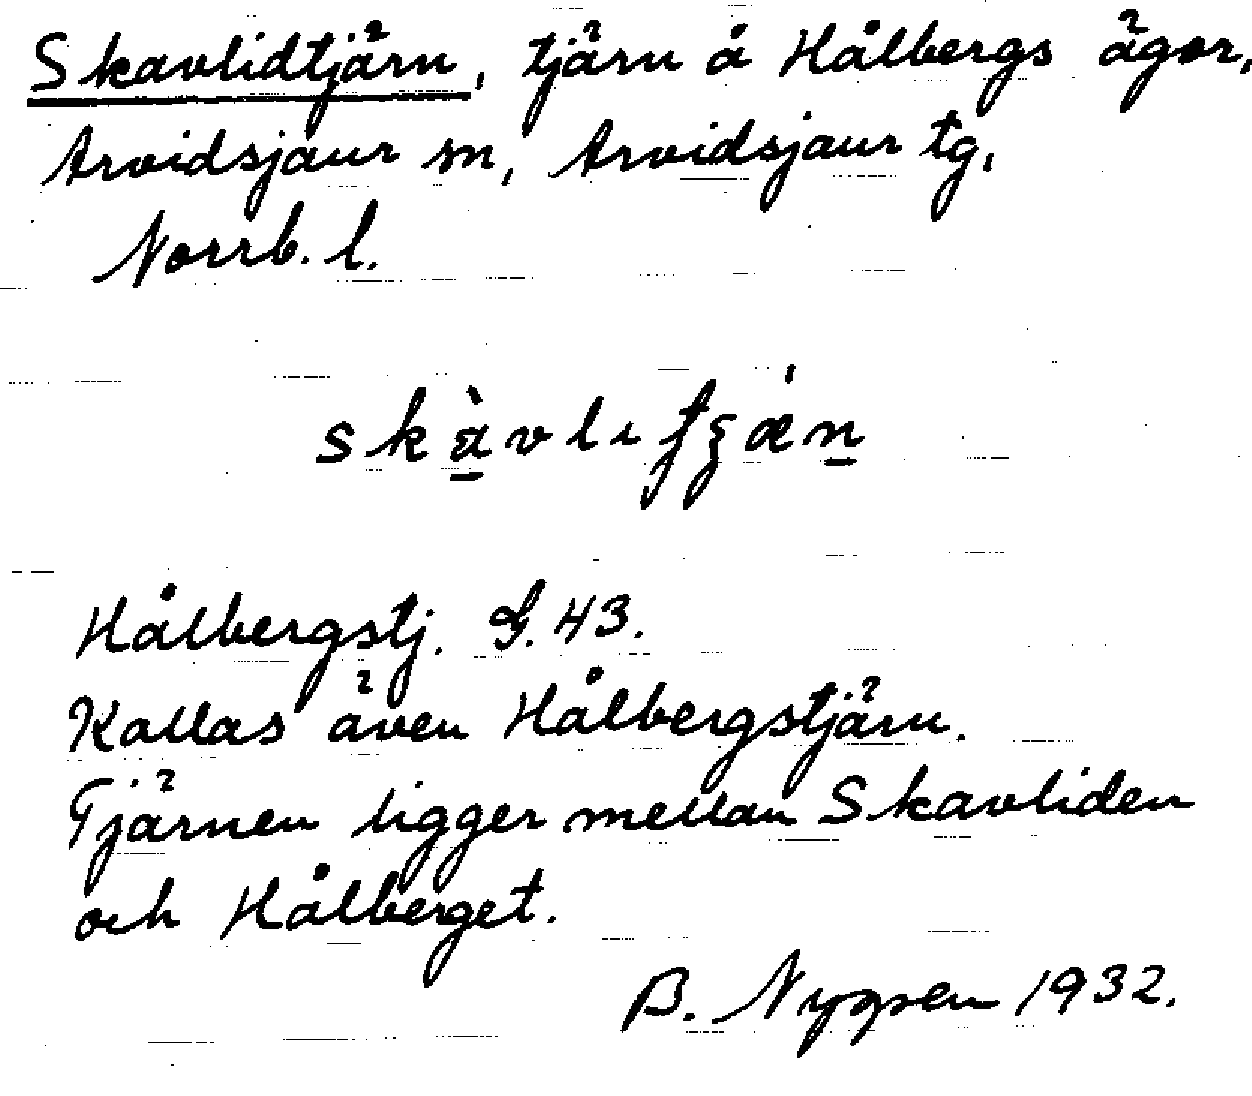 Skavlidtjärn, tjärn å Hålbergs ägor,
Arvidsjaur sn, Arvidsjaur tg,
Norrb. l.
Hålbergstj. G. 43.
Kallas även Hålbergstjärn.
Tjärnen ligger mellan Skavliden
och Hålberget.
B. 1932.